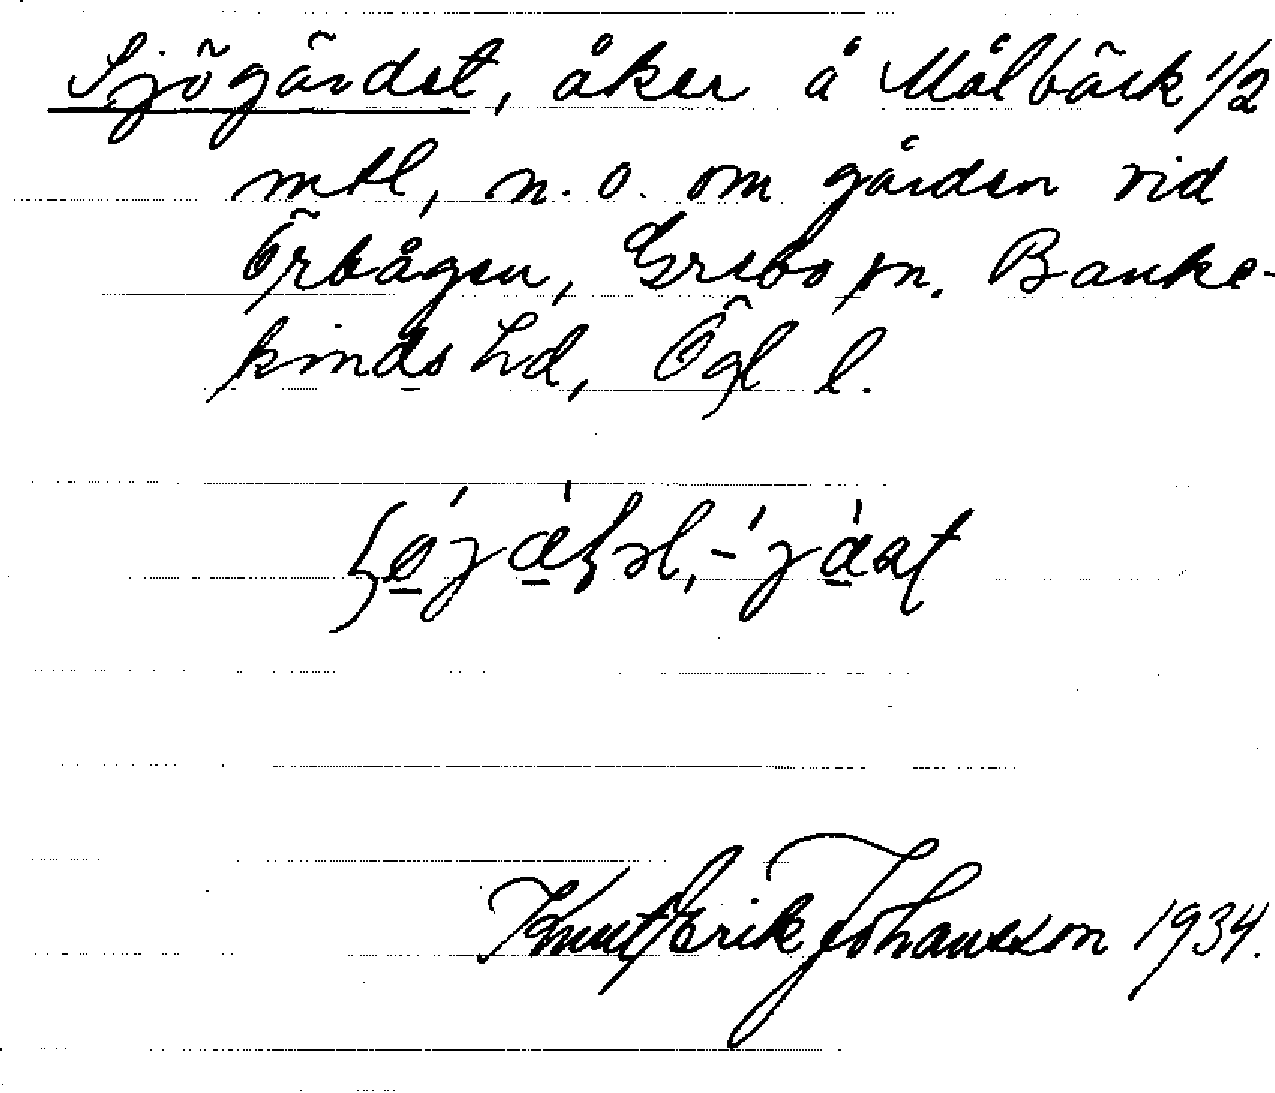 Sjögärdet, åker å Målbäck 1/2
mtl, n. o. om gården vid
Örbågen, Grebo sn. Banke-
kinds hd, Ögl l.
Knut Erik Johansson 1934.